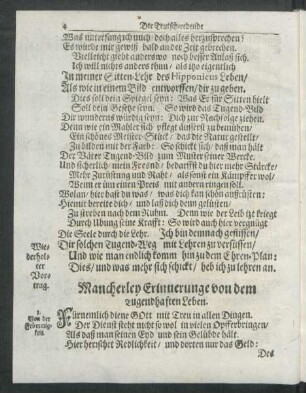 4 Die Teutschredende
Was unterfang ich mich doch alles herzusprechen?
Es würde mir gewiß bald an der Zeit gebrechen.
Vielleicht giebt anderswo noch besser Anlaß sich.
Ich will nichts anders thun/ als itzo eigentlich
In meiner Sitten-Lehr des Hipponicus Leben/
Als wie in einem Bild entworffen/ dir zu geben.
Dies soll dein Spiegel seyn: Was Er für Sitten hielt
Soll dein Gesetze seyn. So wird das Tugend-Bild
Dir wunderns würdig seyn: Dich zur Nachfolge ziehen.
Denn wie ein Mahler sich pflegt äuserst zu bemühen/
Ein schönes Meister-Stück/ das die Natur gestellt/
Zu bilden mit der Farb: So schickt sich/ daß man hält
Der Väter Tugend-Bild zum Muster seiner Wercke.
Und sicherlich/ mein Freund/ bedarffst du hier mehr Stärcke/
Mehr Zurüstung und Raht/ als sonst ein Kämpffer wol/
Wenn er um einen Preis mit andern ringen soll.
Wolan/ hie hast du was/ was dich kan schön ausrüsten:
Hiemit bereite dich/ und laß dich denn gelüsten/
Zu streben nach dem Ruhm. Denn wie der Leib itzt kriegt
Durch Übung seine Krafft: So wird auch hier vergnügt
Die Seele durch die Lehr. Ich bin demnach geflissen/
Wiederholeter Vortrag.
Dir solchen Tugend-Weg mit Lehren zu versüssen/
Und wie man endlich komm hin zu dem Ehren-Plan:
Dies/ und was mehr sich schickt/ heb ich zu lehren an.
Mancherley Erinnerunge von dem
tugendhaften Leben.
1.
Von der Frömmigkeit.
Fürnemlich diene GOtt mit Treu in allen Dingen.
Der Dienst steht nicht so wol in vielen Opfferbringen/
Als daß man seinen Eyd und sein Gelübde hält.
Hier herrschet Redlichkeit/ und dorten nur das Geld:
Des